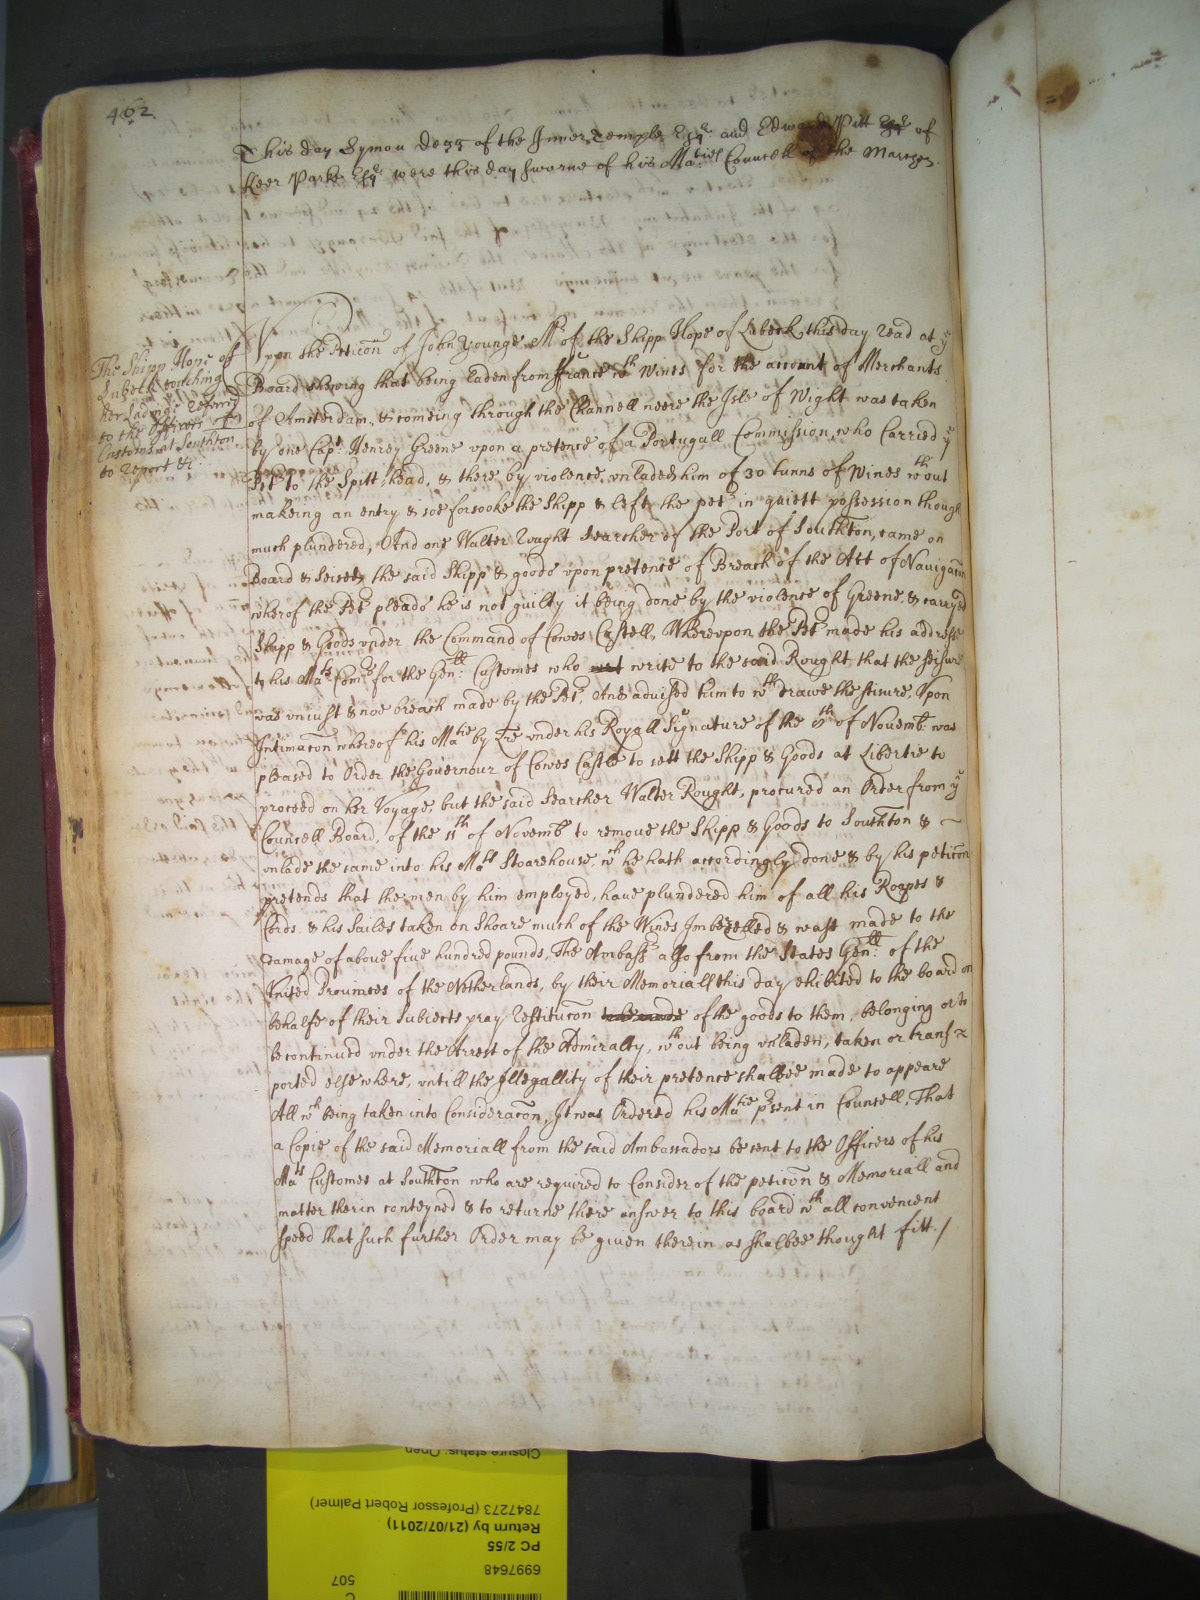 462
This day Symon Degg of the Inner Temple Esqr. and Edward Pitt Esqr of
Keer Parke Esqr. were this day sworne of his Maties Councell of the Marches.
The Shipp Hope of
Lubeck touching
her Ladinge Referrd
to the Officers of
Customs at Southton.
to report &c.
Vpon the Peticon of John Younge Mr of the Shipp Hope of Lubeck, this day read at ye
Board shewing that being laden from France wth Wines for the account of Merchants
of Amsterdam, & comeing through the Channell neere the Isle of Wight was taken
by one Capt. Henrey Greene vpon a pretence of a Portugall Commission, who Carried ye
Petr to the Spitt-head, & there by violence, vnladed him of 30 tunns of Wines wthout
makeing an entry & soe forsooke the Shipp & left the petr in quiett possession though
much plundered, And one Walter Rought Searcher of the Port of Southton, came on
Board & Seised the said Shipp & goods vpon pretence of Breach of the Act of Nauigacon
wherof the Petr pleads he is not guilty it being done by the violence of Greene, & carryed
Shipp & Goods vnder the Command of Cowes Castell, Wherevpon the Petr made his addresse
to his Mats Comrs for the Genll: Customes who writ write to the said Rought, that the seisure
was vniust & noe breach made by the Petr, And aduised him to wthdrawe the seisure, Vpon
Intimacon whereof his Matie by Lre vnder his Royall Signature of the 5th of Novembr. was
pleased to Order the Gouernour of Cowes Castle to sett the Shipp & Goods at Libertie to
proceed on her Voyage, but the said Searcher Walter Rought, procured an Order from ye
Councell Board, of the 11th of Novembr to remoue the Shipp & Goods to Southton & ~
vnlade the same into his Mats Stoarehouse, wch he hath accordingly done & by his peticon
pretends that the men by him employed, haue plundered him of all his Roapes &
Cords. & his Sailes taken on Shoare much of the Wines Imbezelled & wast made to the
damage of aboue fiue hundred pounds, The Ambassrs also from the States Genll: of the
Vnited Prouinces of the Netherlands, by their Memoriall this day exhibited to the board on
behalfe of their Subiects pray Restitucon to be made of the goods to them, belonging or to
be continued vnder the Arrest of the Admiralty, wthout being vnladen, taken or trans=
ported elsewhere, vntill the Illegallity of their pretence shalbee made to appeare
All wch being taken into Consideracon, It was Ordered his Matie p'sent in Councell, That
a Copie of the said Memoriall from the said Ambassadors be sent to the Officers of his
Mats Customes at Southton who are required to Consider of the peticon & Memoriall and
matter therin conteyned & to returne there answer to this board wth all convenient
speed that such further Order may be given therein as shalbee thought fitt./
Closure status: Open
7847273 (Professor Robert Palmer)
Return by (21/07/2011)
PC 2/55
6997648
507